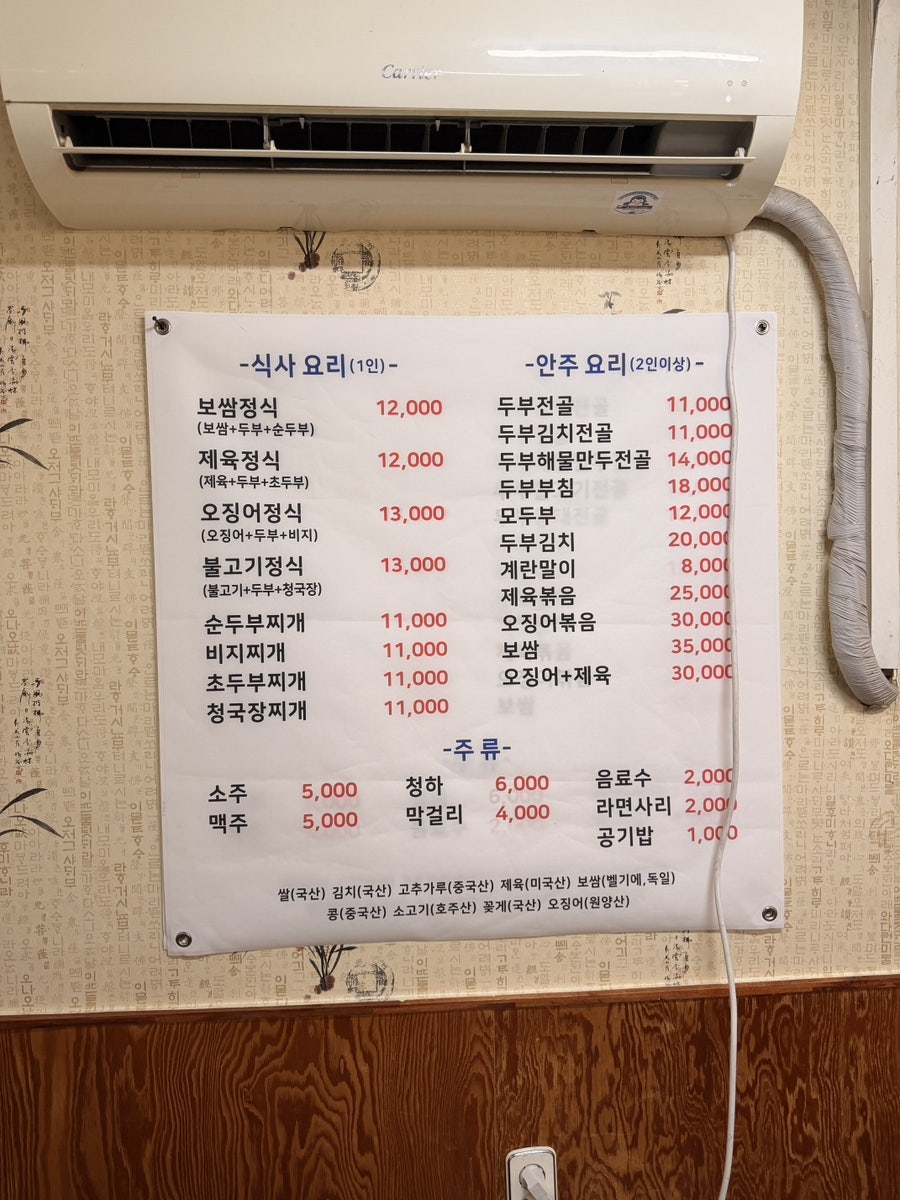 Carrier
-식사 요리(1인)-
보쌈정식 12,000
(보쌈+두부+순두부)
제육정식 12,000
(제육+두부+초두부)
오징어정식 13,000
(오징어+두부+비지)
불고기정식 13,000
(불고기+두부+청국장)
순두부찌개 11,000
비지찌개 11,000
초두부찌개 11,000
청국장찌개 11,000
-안주 요리(2인이상)-
두부전골 11,000
두부김치전골 11,000
두부해물만두전골 14,000
두부부침 18,000
모두부 12,000
두부김치 20,000
계란말이 8,000
제육볶음 25,000
오징어볶음 30,000
보쌈 35,000
오징어+제육 30,000
-주 류-
소주 5,000
맥주 5,000
청하 6,000
막걸리 4,000
음료수 2,000
라면사리 2,000
공기밥 1,000
쌀(국산) 김치(국산) 고추가루(중국산) 제육(미국산) 보쌈(벨기에,독일)
콩(중국산) 소고기(호주산) 꽃게(국산) 오징어(원양산)